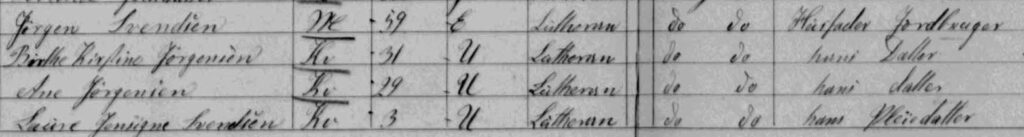 Jörgen Svendsen M 59 E Lutheran do do Huusfader Jordbruger
Birthe Kirstine Jörgensen Kv 31 U Lutheran do do hans Datter
Ane Jörgensen Kv 29 U Lutheran do do hans datter
Laure Jensigne Svendsen Kv 3 U Lutheran do do hans Pleiedatter